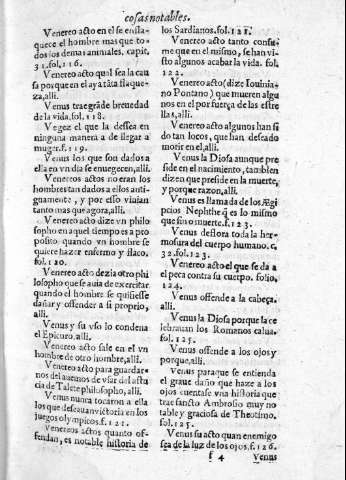 cosas notables.
Venereo acto en el se enfla-
quece el hombre mas que to-
dos los demas animales. capit.
31. fol. 116.
Venereo acto qual sea la cau
sa porque en el ay atãta flaque-
za, alli.
Venus trae grãde breuedad
de la vida. fol. 118.
Vegez el que la dessea en
ninguna manera a de llegar a
muger. f. 119.
Venus los que son dados a
ella en vn dia se enuegecen, alli.
Venereos actos no eran los
hombres tan dados a ellos anti-
guamente, y por esso viuian
tanto mas que agora, alli.
Venereo acto dize vn philo
sopho en aquel tiempo es a pro
posito quando vn hombre se
quiere hazer enfermo y flaco.
fol. 120.
Venereo acto dezia otro phi
losopho que se auia de exercitar
quando el hombre se quisiesse
dañar y offender a si proprio,
alli.
Venus y su vso lo condena
el Epicuro, alli.
Venereo acto sale en el vn
hombre de otro hombre, alli.
Venereo acto para guardar-
nos del auemos de vsar del astu
cia de Talete philosopho, alli.
Venus nunca tocaron a ella
los que desseauan victoria en los
juegos olympicos. f. 121.
Venereo actos quanto of-
fendan, es notable historia de
los Sardianos. fol. 121.
Venereo acto tanto consu-
me que en el mismo, se han vi-
sto algunos acabar la vida. fol.
122.
Venereo acto (dize Iouinia-
no Pontano) que mueren algu
nos en el por fuerça de las estre
llas, alli.
Venereo acto algunos han si
do tan locos, que han desseado
morir en el, alli.
Venus la Diosa aunque pre
side en el nacimiento, tambien
dizen que preside en la muerte,
y porque razon, alli.
Venus es llamada de los Ægi
pcios Nephthe q̃ es lo mismo
que fin o muerte. f. 123.
Venus desflora toda la her-
mosura del cuerpo humano. c.
32. fol. 123.
Venereo acto el que se da a
el peca contra su cuerpo. folio,
124.
Venus offende a la cabeça.
alli.
Venus la Diosa porque la ce
lebrauan los Romanos calua.
fol. 125.
Venus offende a los ojos y
porque, alli.
Venus para que se entienda
el graue daño que haze a los
ojos cuentase vna historia que
trae sancto Ambrosio muy no
table y graciosa de Theotimo.
fol. 125.
Venus su acto quan enemigo
sea de la luz de los ojos. f. 126.
f 4 Venus